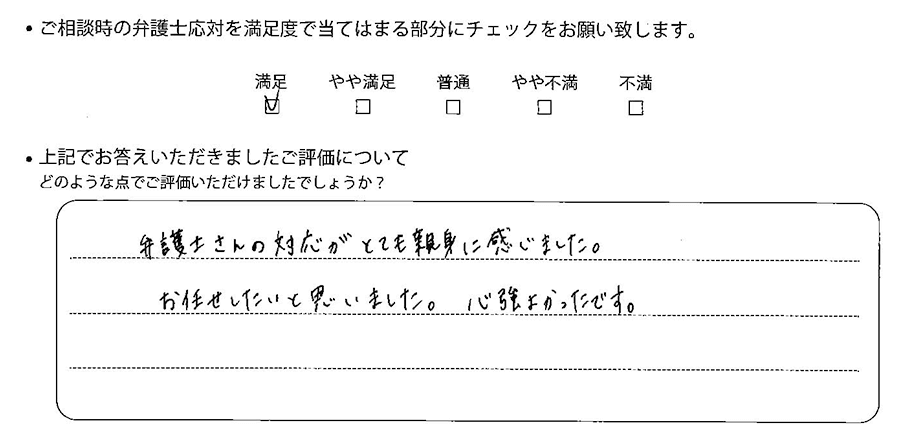 ・ご相談時の弁護士応対を満足度で当てはまる部分にチェックをお願い致します。
満足 やや満足 普通 やや不満 不満
・上記でお答えいただきましたご評価について
どのような点でご評価いただけましたでしょうか？
弁護士さんの対応がとても親身に感じました。
お任せしたいと思いました。 心強よかったです。